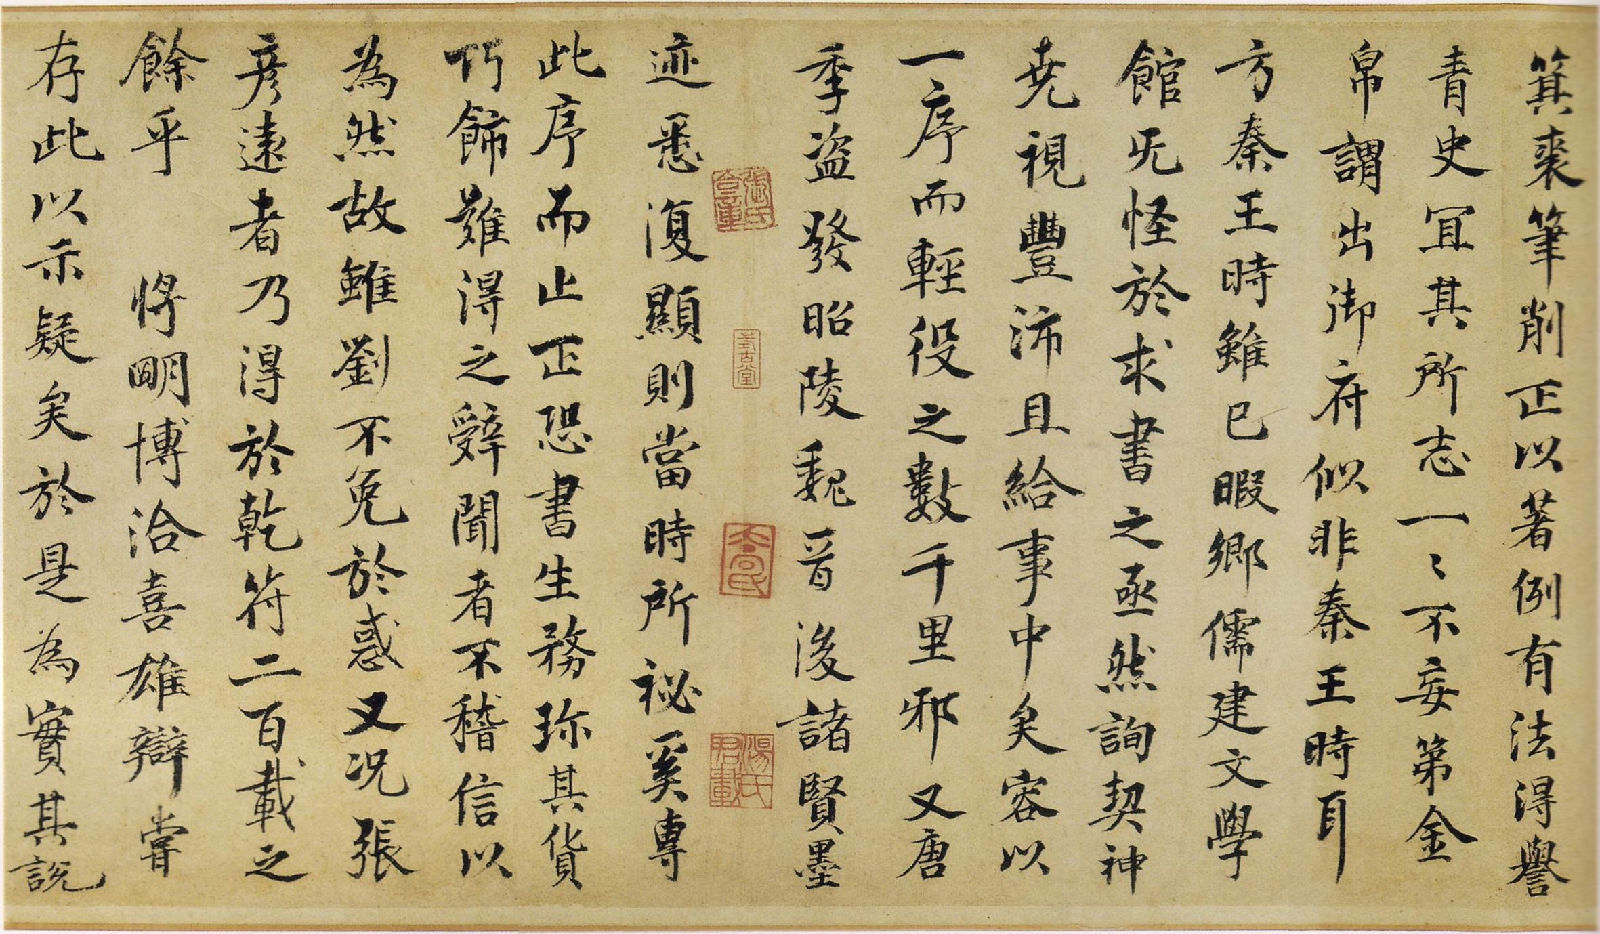 箕裘筆削正以著例有法得譽
青史冝其所志一〻不妄第金
帛謂出御府似非秦王時耳
方秦王時雖已暇鄉儒建文學
館旡怪於求書之亟然詢契神
尭視豐沛且給事中矣容以
一序而輕役之數千里邪又唐
季盜發昭陵魏晉後諸賢墨
迹悉復顯則當時所祕奚專
此序而止正恐書生務珎其貨
巧飾難得之辭聞者不稽信以
為然故雖劉不免於惑又况張
彦遠者乃得於乾符二百載之
餘乎 將明博洽喜雄辯嘗
存此以示疑矣於是為實其說
張氏
式古堂